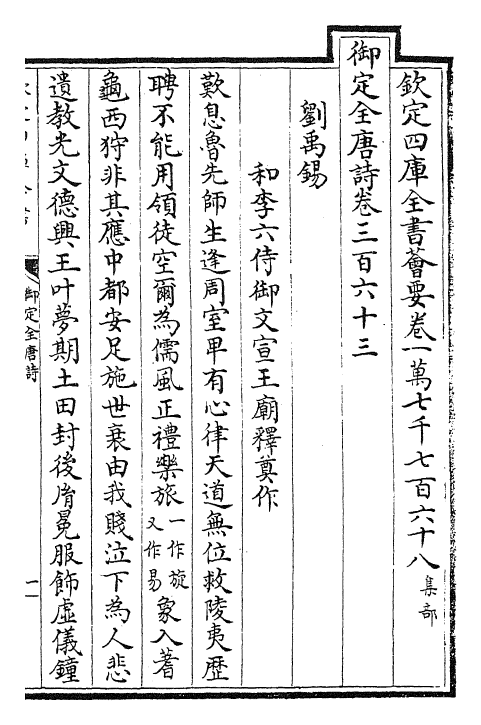 欽定四庫全書薈要卷一萬七千七百六十八 集部
御定全唐詩卷三百六十三
劉禹錫
和李六侍御文宣王廟釋奠作
歎息魯先師生逢周室卑有心律天道無位救陵夷歴
聘不能用領徒空爾為儒風正禮樂旅一作旋又作易象入蓍
龜西狩非其應中都安足施世衰由我賤泣下為人悲
遺教光文德興王叶夢期土田封後胤冕服飾虚儀鐘
御定全唐詩
一